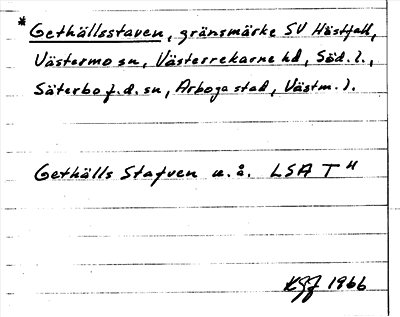 * Gethällsstaven, gränsmärke SV Hästfall,
Västermo sn, Västerrekarne hd, Söd. l.,
Säterbo f.d. sn, Arboga stad, Västm. l.
Gethälls Stafven u.å. LSA T 4
1966